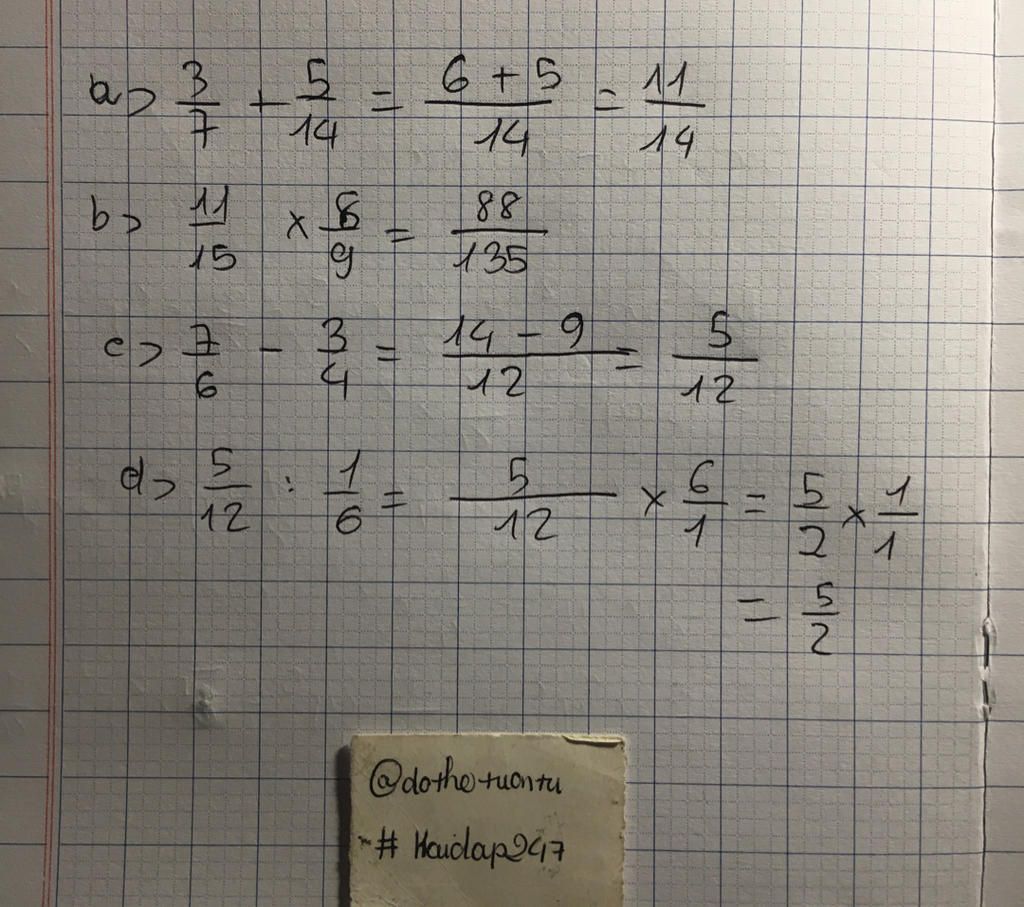 a> 3/7 + 5/14 = (6 + 5)/14 = 11/14
b> 11/15 × 8/9 = 88/135
c> 7/6 - 3/4 = (14 - 9)/12 = 5/12
d> 5/12 : 1/6 = 5/12 × 6/1 = 5/2 × 1/1
= 5/2
@dothetuantu
# Hoidap247